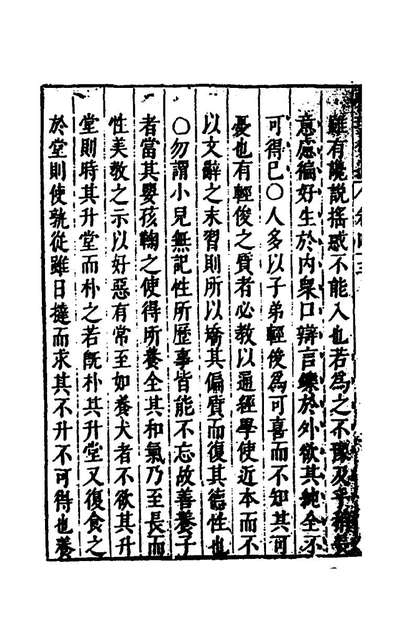 雖有讒說搖惑不能入也若為之不豫及乎稍長
意慮偏好生於內衆口辯言鑠於外欲其純全不
可得已〇人多以子弟輕俊為可喜而不知其可
憂也有輕俊之質者必教以通經學使近本而不
以文辭之末習則所以矯其偏質而復其德性也
〇勿謂小兒無記性所歷事皆能不忘故善養子
者當其嬰孩鞠之使得所養全其和氣乃至長而
性美教之示以好惡有常至如養犬者不欲其升
堂則時其升堂而朴之若既朴其升堂又復食之
於堂則使孰從雖日撻而求其不升不可得也養